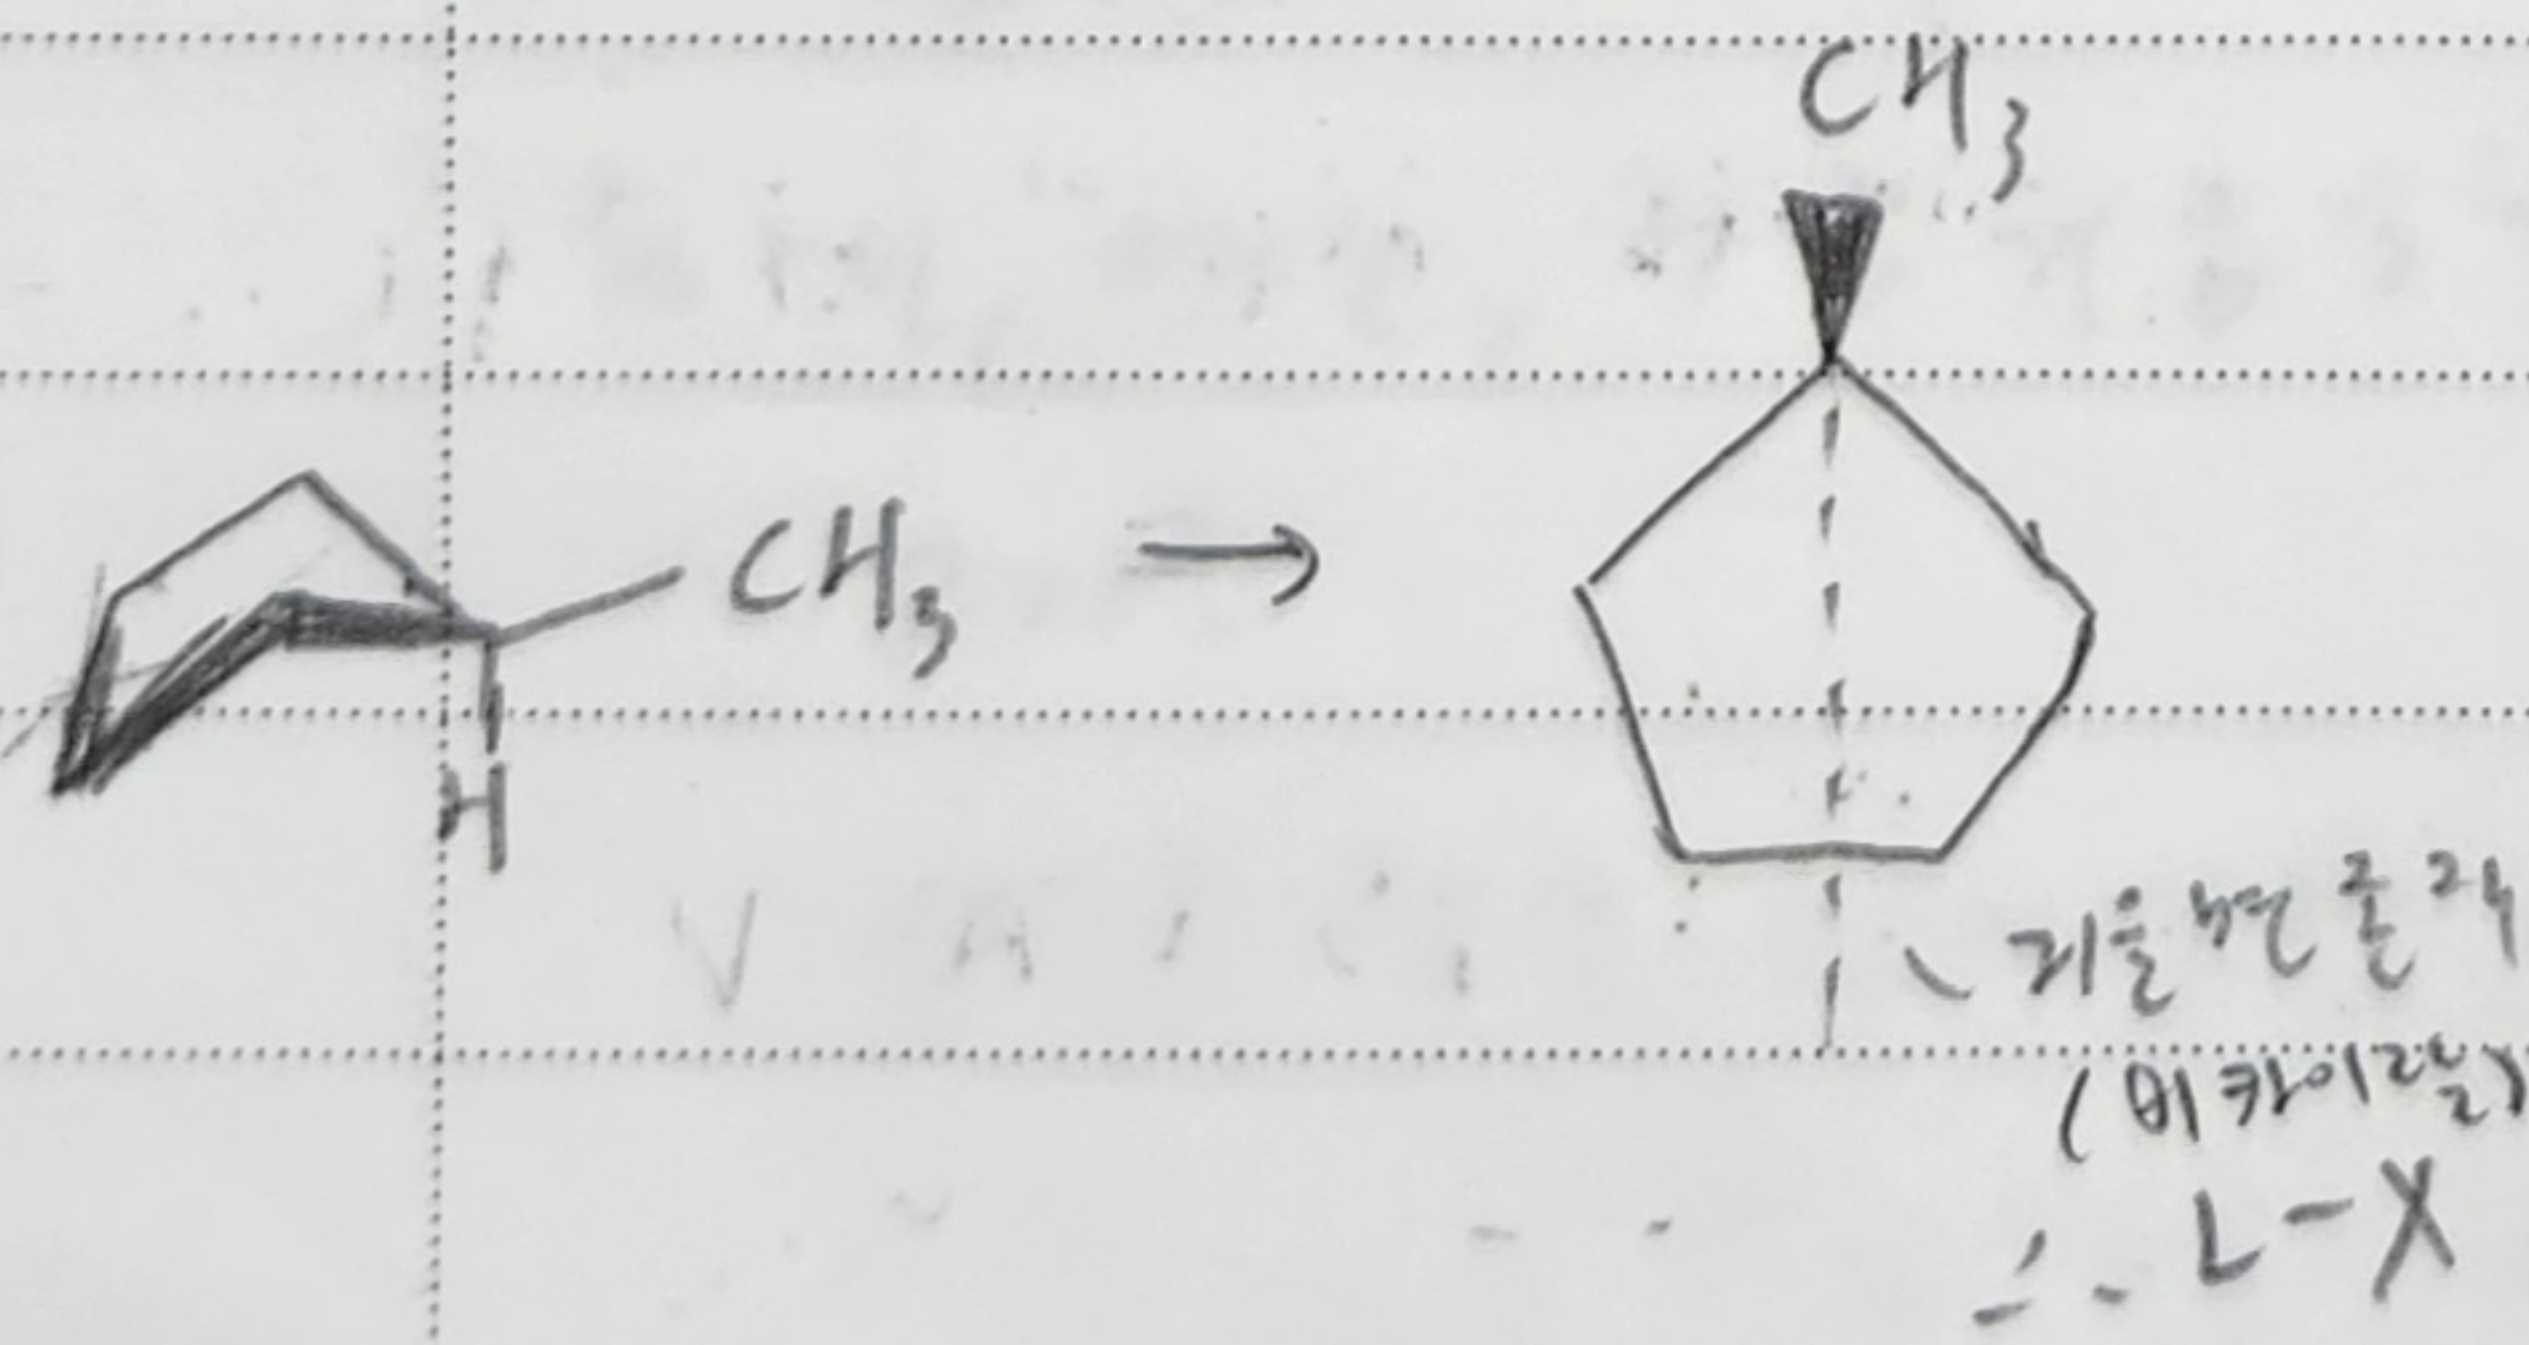 CH3
CH3
H
거울면 존재
(비카이랄)
∴ L-X